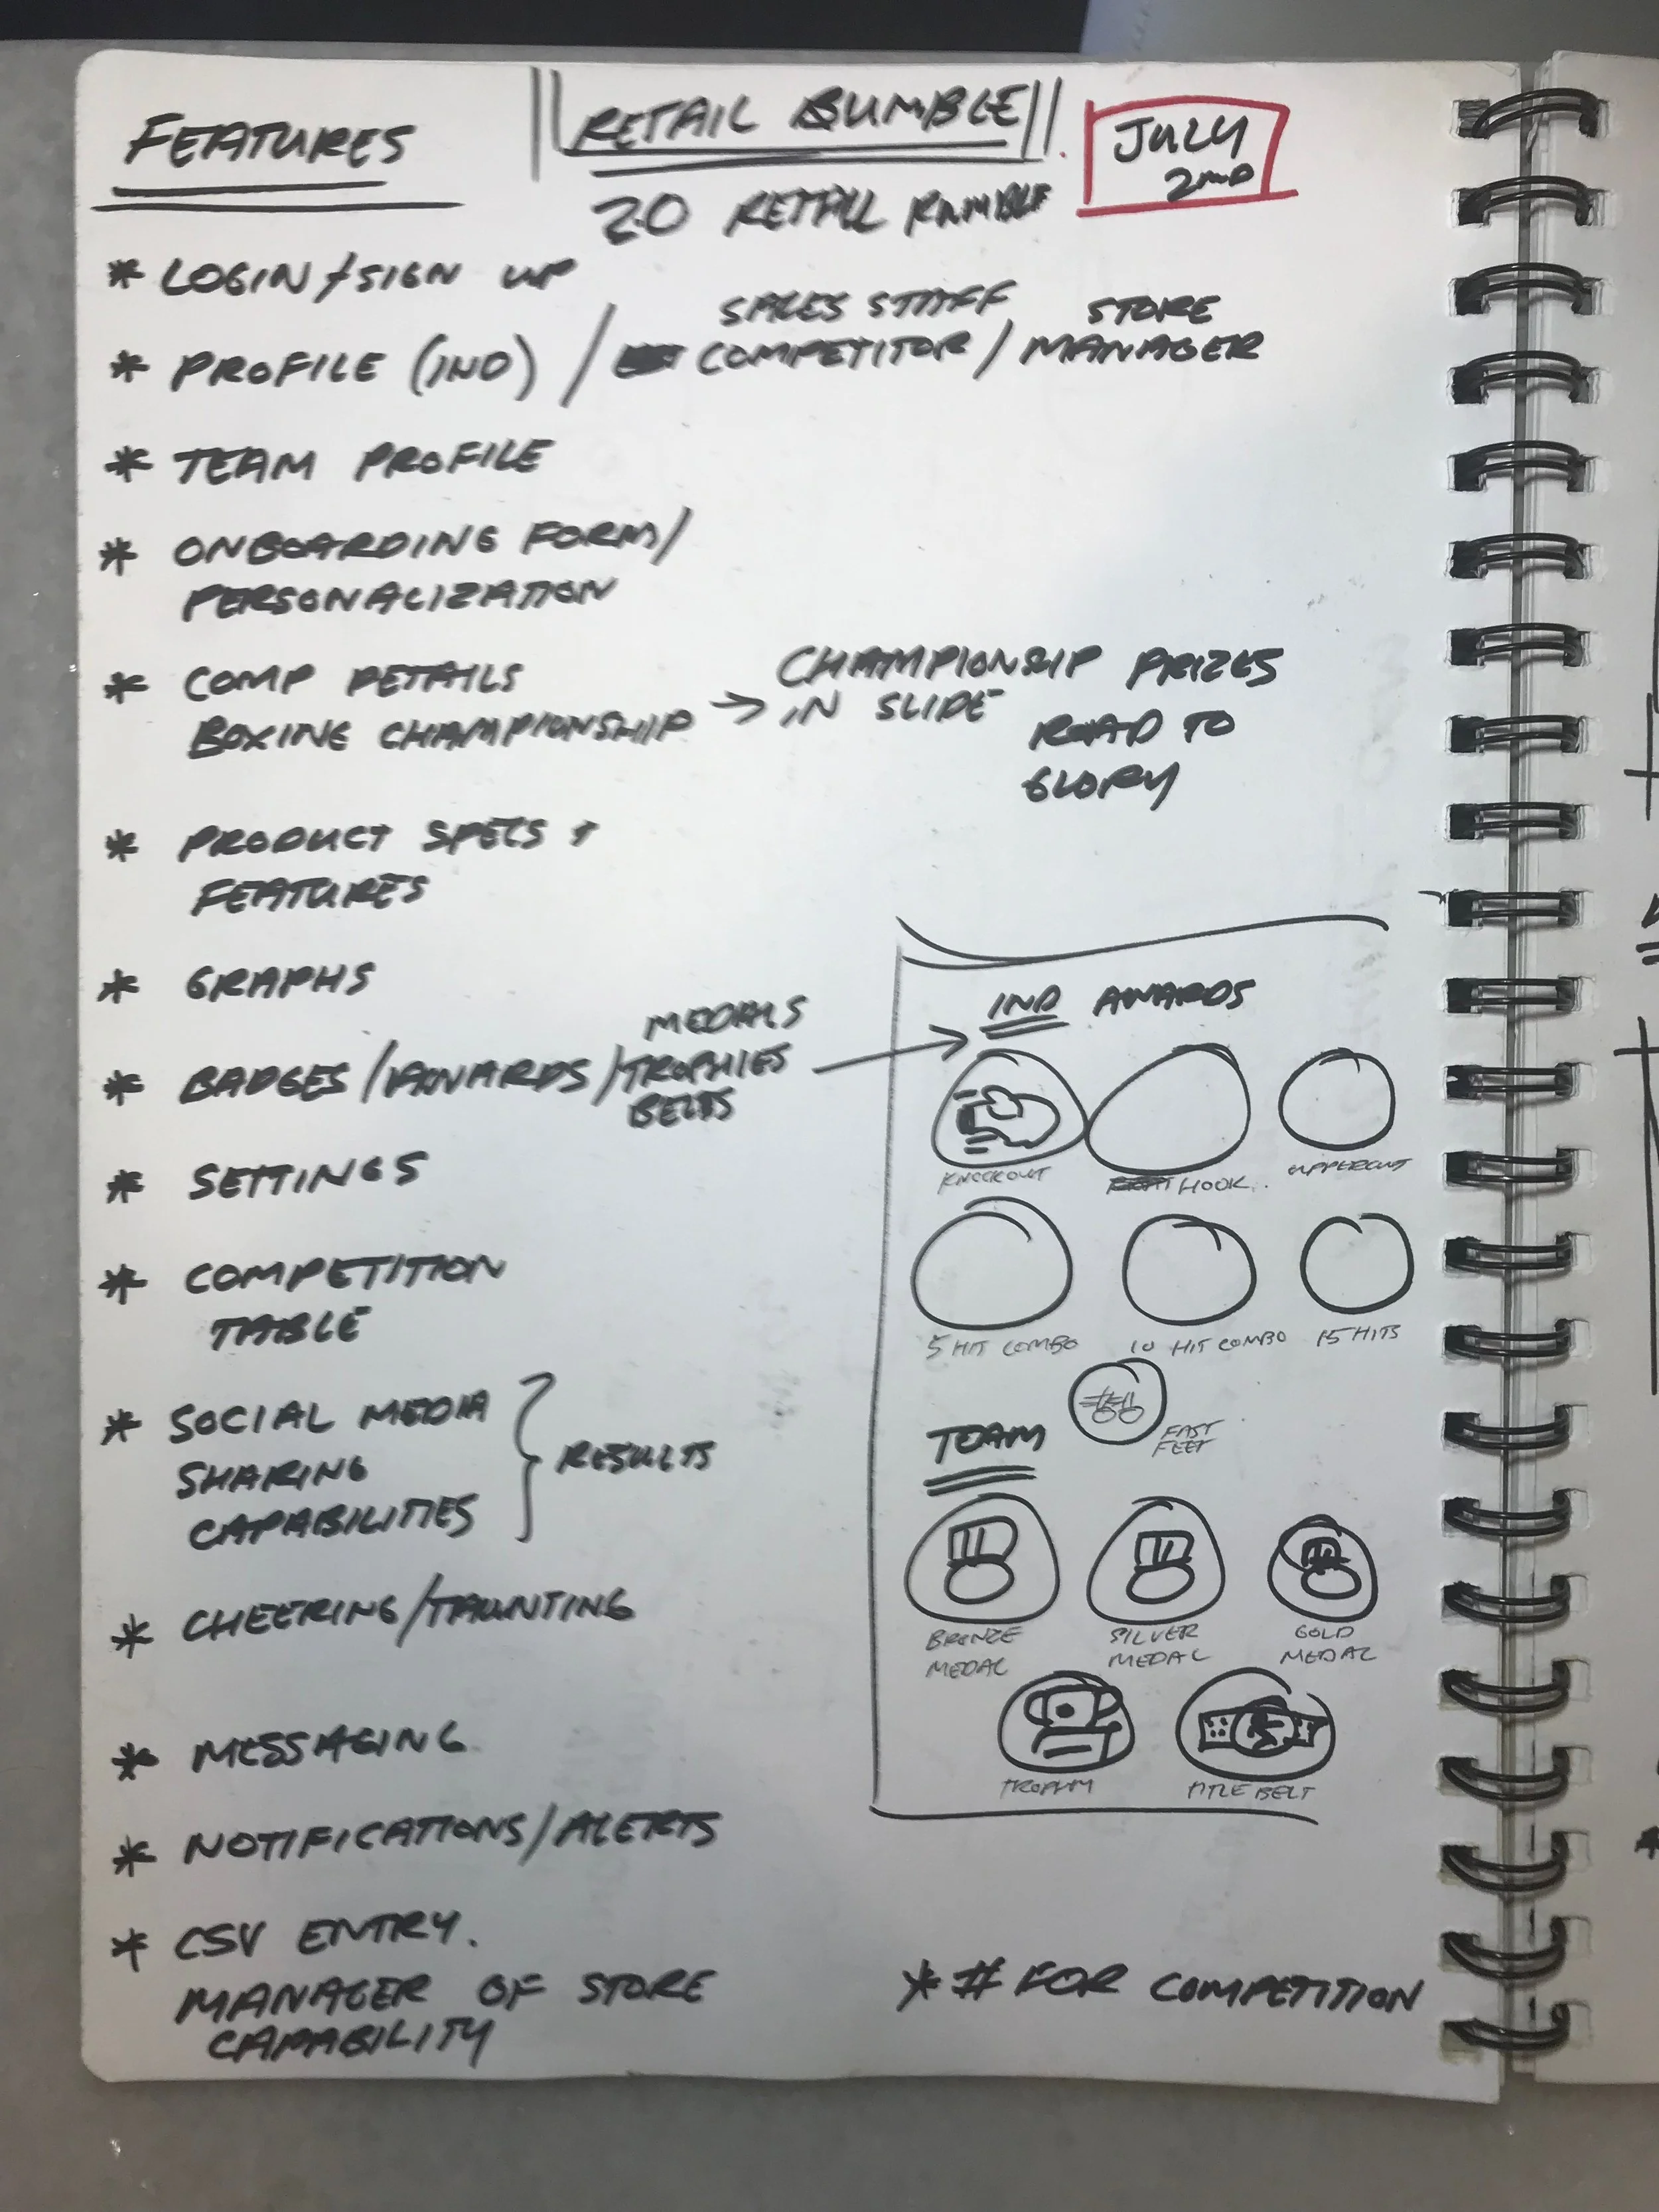 FEATURES
RETAIL BUMBLE
JULY
2ND
2.0 RETAIL RUMBLE
* LOGIN / SIGN UP
* PROFILE (IND) / COMPETITOR / MANAGER
SALES STAFF STORE
* TEAM PROFILE
* ONBOARDING FORM/
PERSONALIZATION
* COMP DETAILS
BOXING CHAMPIONSHIP → CHAMPIONSHIP PRIZES
IN SLIDE
ROAD TO
GLORY
* PRODUCT SPECS +
FEATURES
* GRAPHS
* BADGES / AWARDS / TROPHIES
MEDALS
BELTS
* SETTINGS
* COMPETITION
TABLE
* SOCIAL MEDIA
SHARING
CAPABILITIES
RESULTS
* CHEERING/TAUNTING
* MESSAGING
* NOTIFICATIONS/ALERTS
* CSV ENTRY.
MANAGER OF STORE
CAPABILITY
IND AWARDS
KNOCKOUT
HOOK.
UPPERCUT
5 HIT COMBO
10 HIT COMBO
15 HITS
FAST
FEET
TEAM
BRONZE
MEDAL
SILVER
MEDAL
GOLD
MEDAL
TROPHY
TITLE BELT
* # FOR COMPETITION